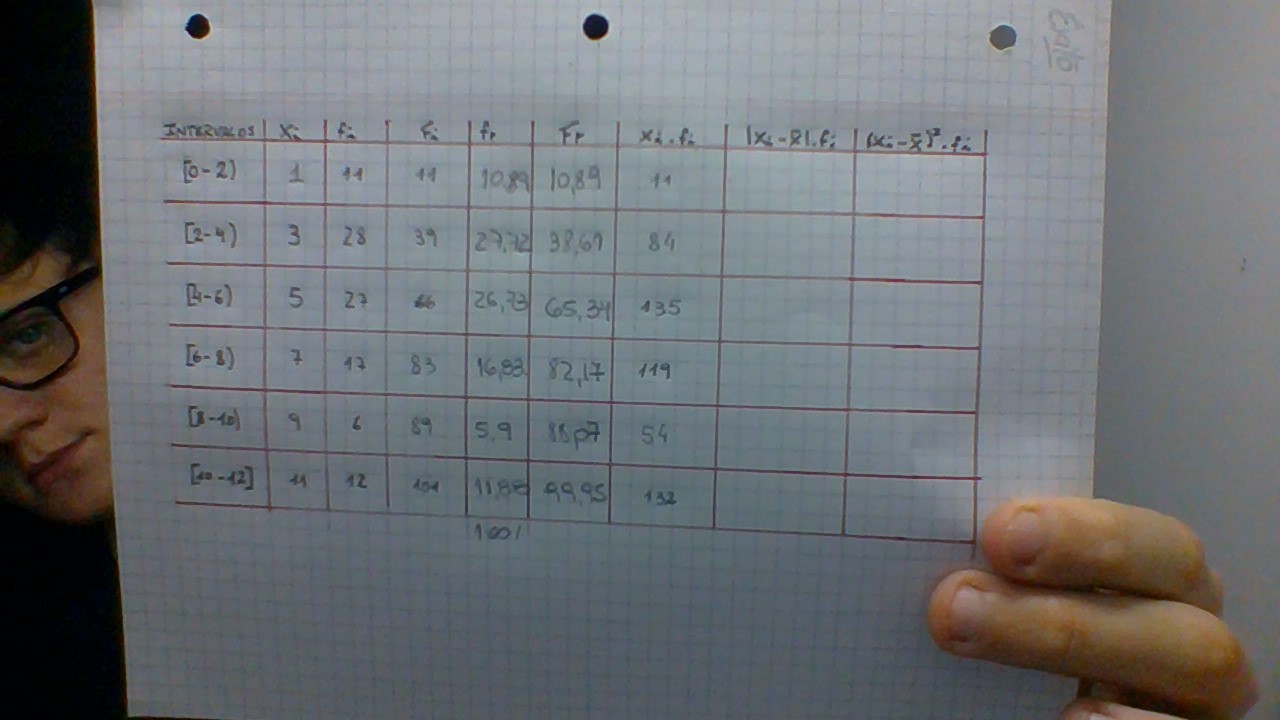 INTERVALOS xi fi Fi fr Fr xi.fi |xi-x̄|.fi (xi-x̄)².fi
[0-2) 1 11 11 10,89 10,89 11
[2-4) 3 28 39 27,72 38,61 84
[4-6) 5 27 66 26,73 65,34 135
[6-8) 7 17 83 16,83 82,17 119
[8-10) 9 6 89 5,9 88,07 54
[10-12] 11 12 101 11,88 99,95 132